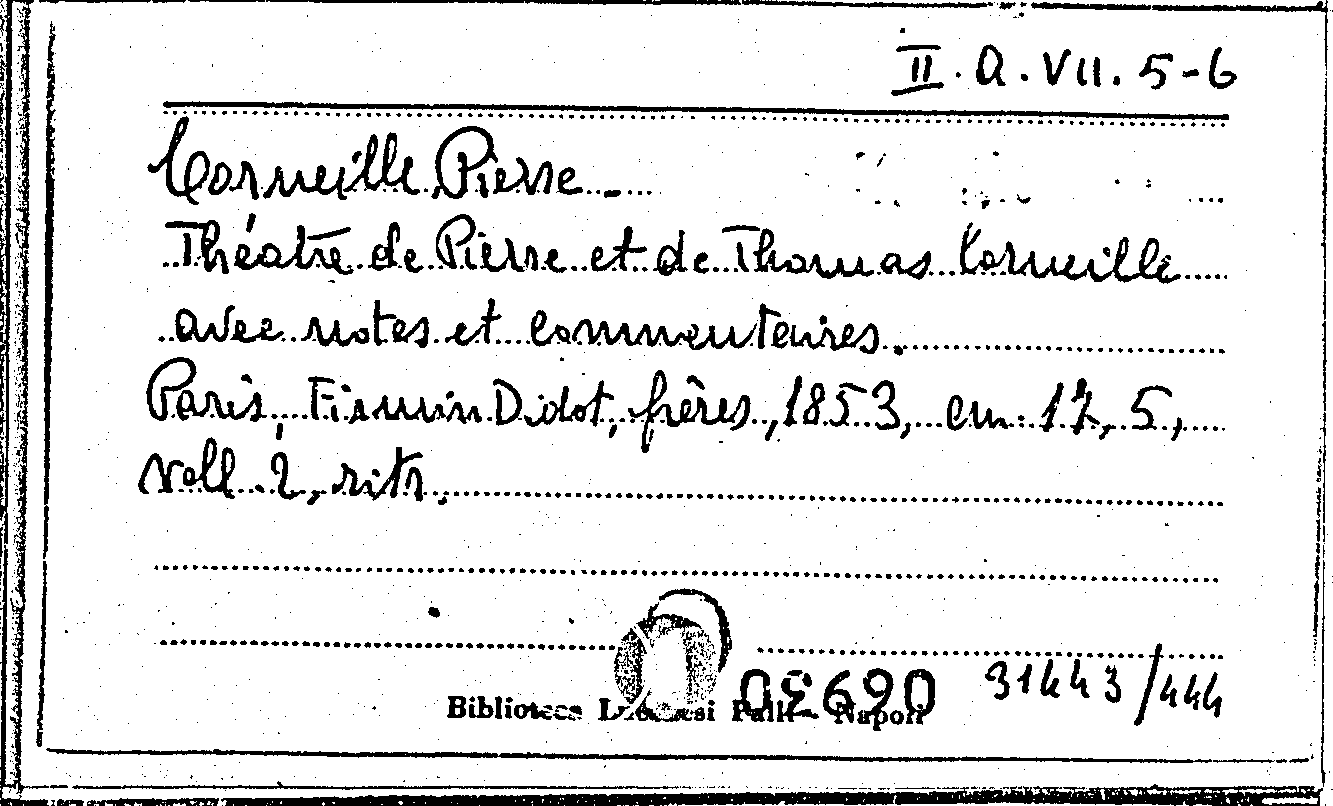 II. A. VII. 5-6
Corneille Pierre -
Théatre de Pierre et de Thomas Corneille
avec notes et commentaires.
Paris, Firmin Didot, frères, 1853, cm. 17,5,
voll. 2, ritr.
31443/444
Biblioteca Lucchesi Palli - Napoli